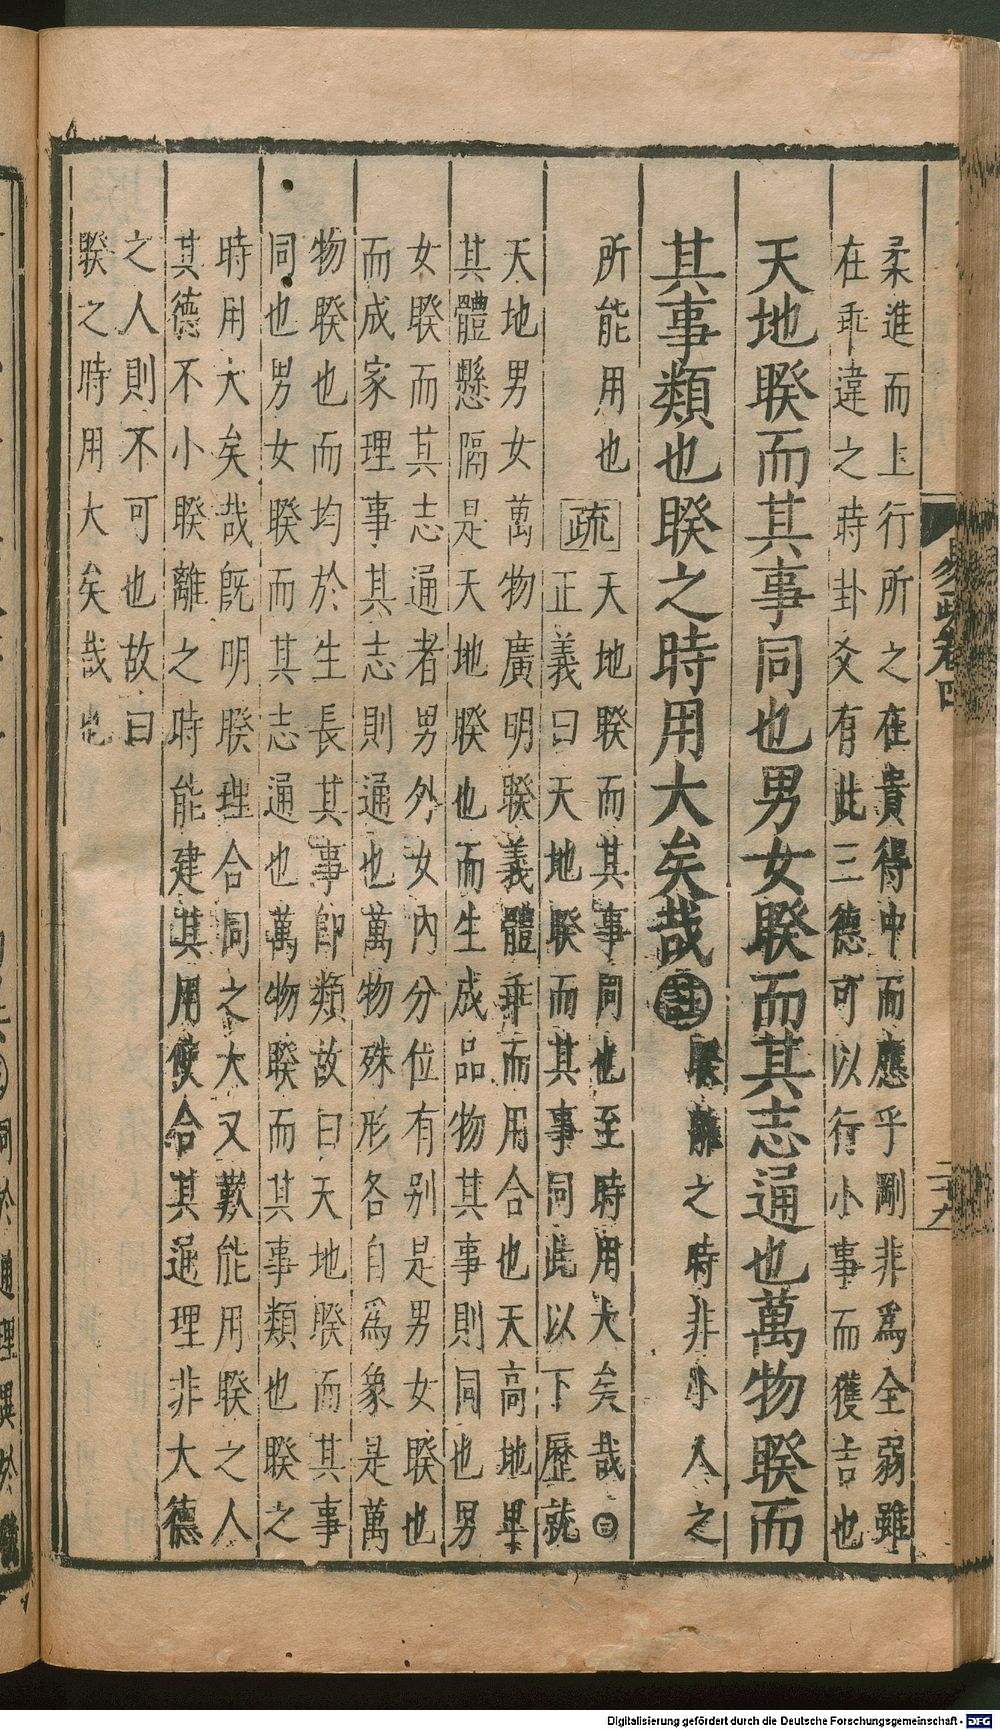 柔進而上行所之在貴得中而應乎剛非爲全弱雖
在乖違之時卦爻有此三德可以行小事而獲吉也
天地睽而其事同也男女睽而其志通也萬物睽而
其事類也睽之時用大矣哉
註
睽離之時非小人之
所能用也
疏
天地睽而其事同也至時用大矣哉
正義曰天地睽而其事同此以下歷就
天地男女萬物廣明睽義體乖而用合也天高地卑
其體懸隔是天地睽也而生成品物其事則同也男
女睽而其志通者男外女內分位有别是男女睽也
而成家理事其志則通也萬物殊形各自爲象是萬
物睽也而均於生長其事卽類故曰天地睽而其事
同也男女睽而其志通也萬物睽而其事類也睽之
時用大矣哉旣明睽理合同之大又歎能用睽之人
其德不小睽離之時能建其用使合其通理非大德
之人則不可也故曰
睽之時用大矣哉也
易疏卷四
二十九
Digitalisierung gefördert durch die Deutsche Forschungsgemeinschaft - DFG